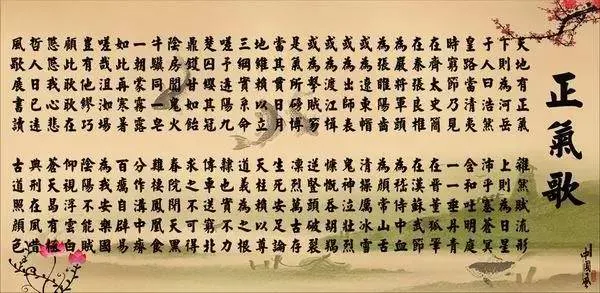 正氣歌
天地有正氣 雜然賦流形
下則為河岳 上則為日星
于人曰浩然 沛乎塞蒼冥
皇路當清夷 含和吐明庭
時窮節乃見 一一垂丹青
在齊太史簡 在晉董狐筆
在秦張良椎 在漢蘇武節
為嚴將軍頭 為嵇侍中血
為張睢陽齒 為顏常山舌
或為遼東帽 清操厲冰雪
或為出師表 鬼神泣壯烈
或為渡江楫 慷慨吞胡羯
或為擊賊笏 逆豎頭破裂
是氣所磅礴 凜烈萬古存
當其貫日月 生死安足論
地維賴以立 天柱賴以尊
三綱實系命 道義為之根
嗟予遘陽九 隸也實不力
楚囚纓其冠 傳車送窮北
鼎鑊甘如飴 求之不可得
陰房闃鬼火 春院閉天黑
牛驥同一皂 雞棲鳳凰食
一朝蒙霧露 分作溝中瘠
如此再寒暑 百癘自辟易
嗟哉沮洳場 為我安樂國
豈有他繆巧 陰陽不能賊
顧此耿耿在 仰視浮雲白
悠悠我心悲 蒼天曷有極
哲人日已遠 典刑在夙昔
風簷展書讀 古道照顏色
中國風